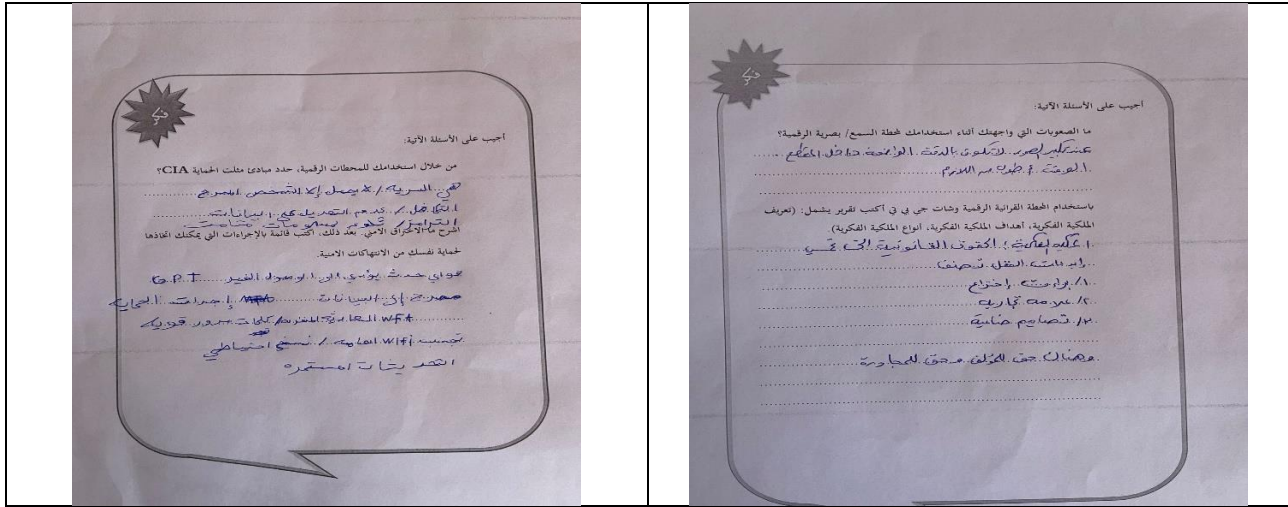 فكّر
أجيب على الأسئلة الآتية:
من خلال استخدامك للمحطات الرقمية، حدد مبادئ مثلث الحماية CIA؟
هي السرية / لا يصل إلا الشخص المصرح
التكامل / عدم التعديل على البيانات
اشرح ما الاختراق الأمني. بعد ذلك، اكتب قائمة بالإجراءات التي يمكنك اتخاذها
لحماية نفسك من الانتهاكات الامنية.
هو اي حدث يؤدي الى الوصول الغير
مصرح إلى البيانات إجراءات الحماية
كلمات مرور قوية
تجنب wifi العامة / نسخ احتياطي
التحديثات المستمره
فكّر
أجيب على الأسئلة الآتية:
ما الصعوبات التي واجهتك أثناء استخدامك لمحطة السمع/ بصرية الرقمية؟
عند تكبير الصور لا تكون بالدقة الواضحة داخل المقطع
الوقت أطول من اللازم
باستخدام المحطة القرائية الرقمية وشات جي بي تي أكتب تقرير يشمل: (تعريف
الملكية الفكرية، أهداف الملكية الفكرية، أنواع الملكية الفكرية).
الحقوق القانونية التي تحمي
العقل تصنف
١/ براءات إختراع
٢/ علامه تجاريه
٣/ تصاميم صناعية
وهناك حق المؤلف وحق المجاورة